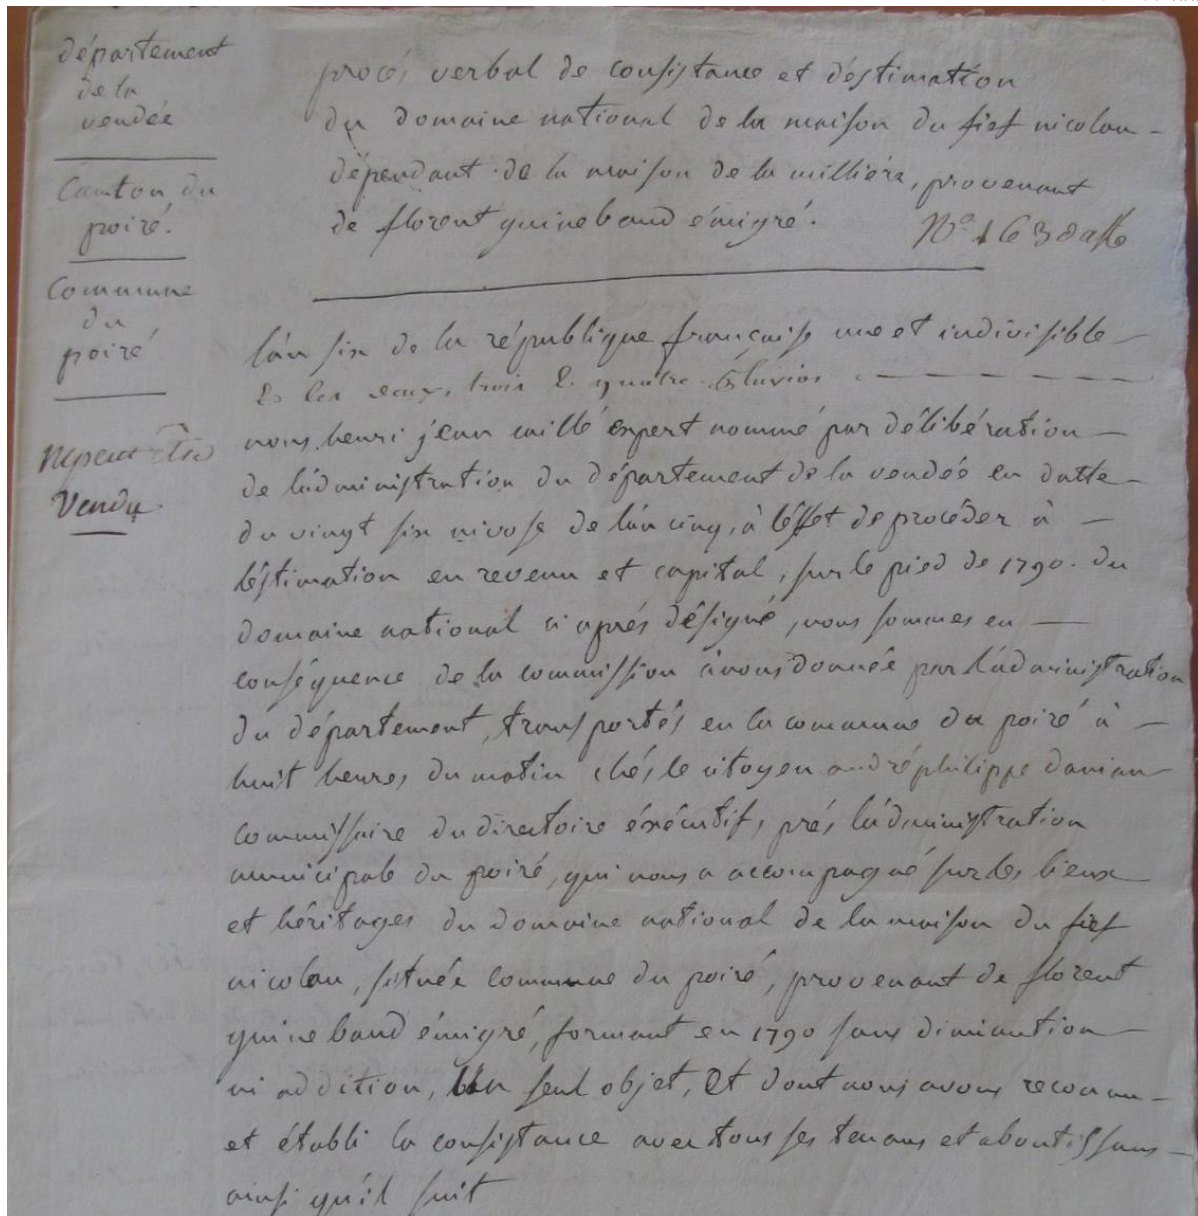 département
de la
vendée
Canton du
poiré.
Commune
du
poiré
Vendu
procés verbal de consistance et d'éstimation
du domaine national de la maison du fief nicolau
dépendant de la maison de la milliére, provenant
de florent guinebaud émigré.
N.o 1638
l'an six de la république française une et indivisible
& les deux, trois & quatre pluvios
nous henri jean caillé expert nommé par délibération
de l'administration du département de la vendée en datte
du vingt six nivose de l'an cinq, à l'éffet de procéder à
l'éstimation en revenu et capital, sur le pied de 1790. du
domaine national ci aprés désigné, nous sommes en
conséquence de la commission à nous donnée par l'administration
du département, transportés en la commune du poiré à
huit heures du matin chés le citoyen andré philippe danian
commissaire du directoire éxécutif, prés l'administration
municipale du poiré, qui nous a accompagné sur les lieux
et héritages du domaine national de la maison du fief
nicolau, située commune du poiré, provenant de florent
guinebaud émigré, formant en 1790 sans diminution
ni addition, Un seul objet, Et dont nous avons reconnu
et établi la consistance avec tous ses tenans et aboutissans
ainsi qu'il suit